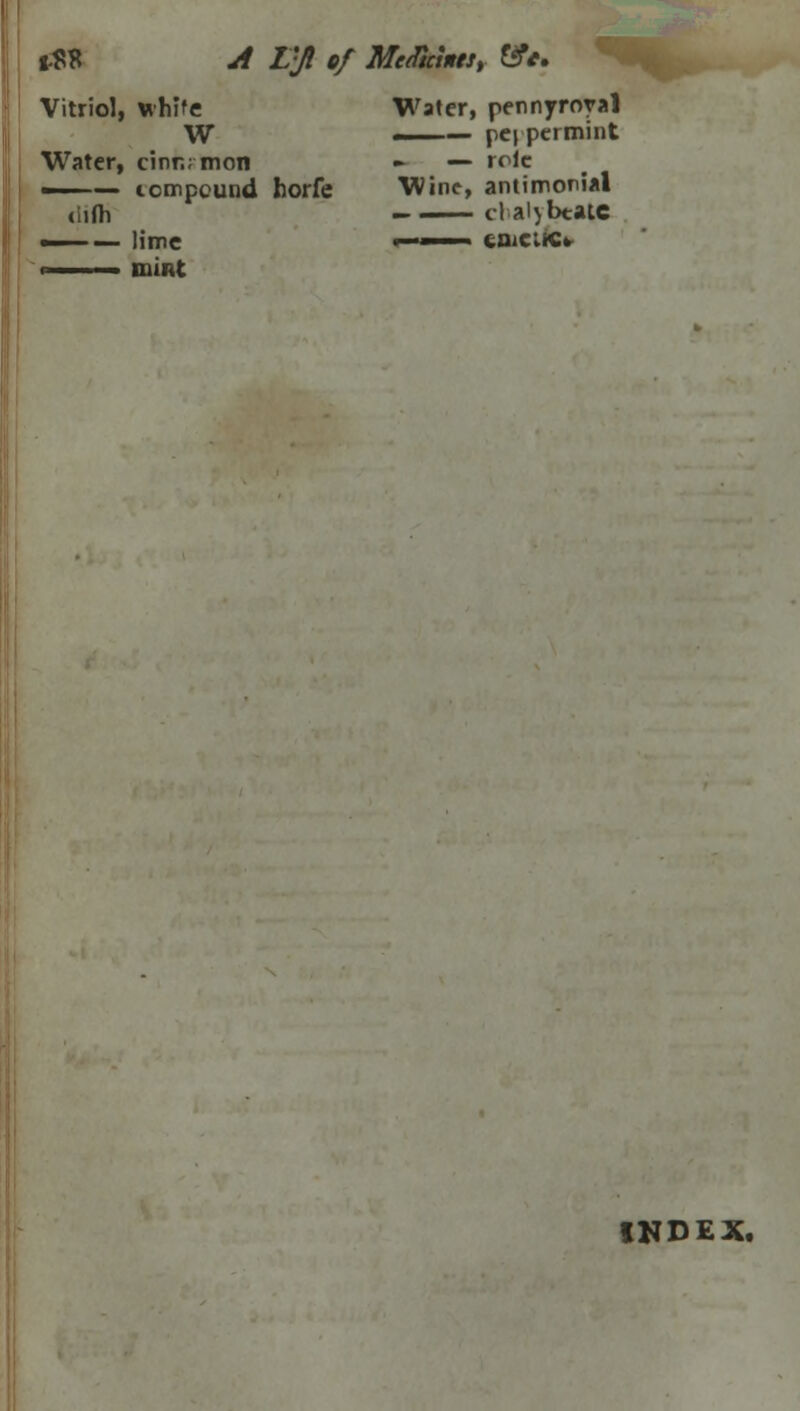 188 A Lıſt of Medicines, &c.
Vitriol, white
W
Water, cinnamon
—— compound horſe
diſh
—— lime
—— mint
Water, pennyroyal
—— peppermint
— — roſe
Wine, antimonial
—— chalybeate
—— emetic.
INDEX.